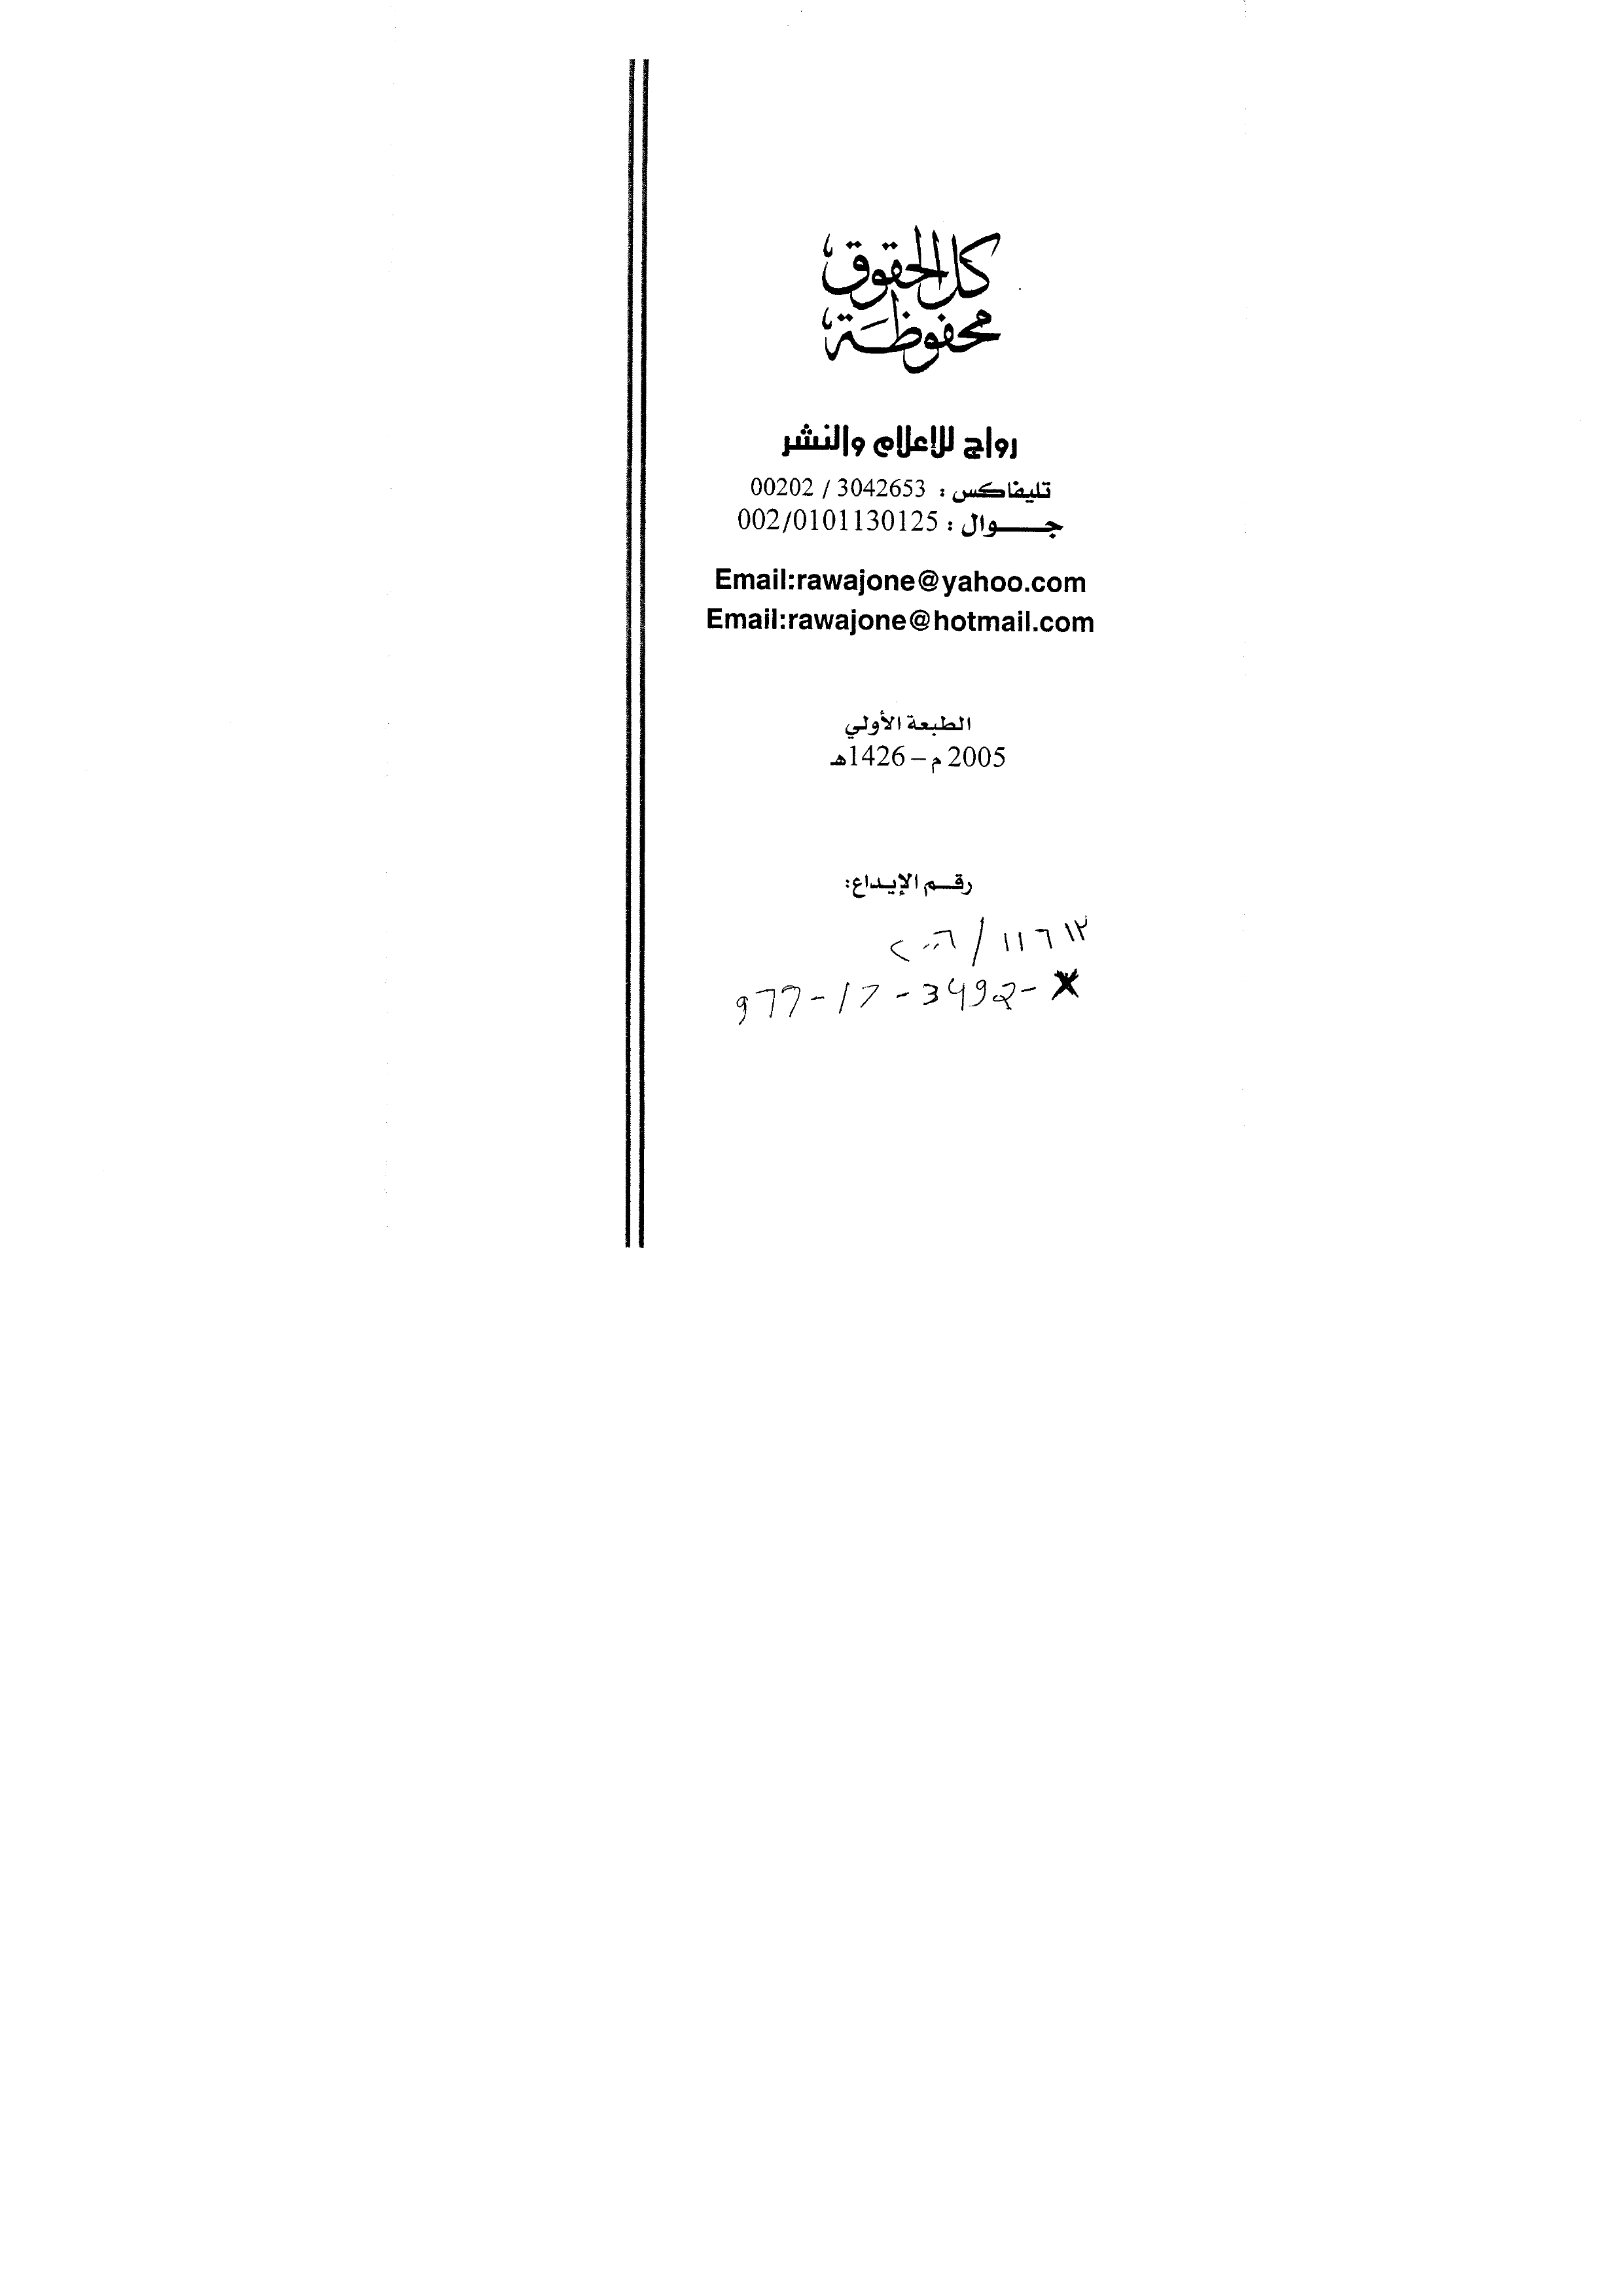 كل الحقوق
محفوظة
رواج للإعلام والنشر
تليفاكس : 3042653 / 00202
جـــــوال : 002/0101130125
Email:rawajone@yahoo.com
Email:rawajone@hotmail.com
الطبعة الأولي
2005 م – 1426هـ
رقـم الإيـداع:
٢٠٠٦ / ١١٦١٣
977-17-3492-X